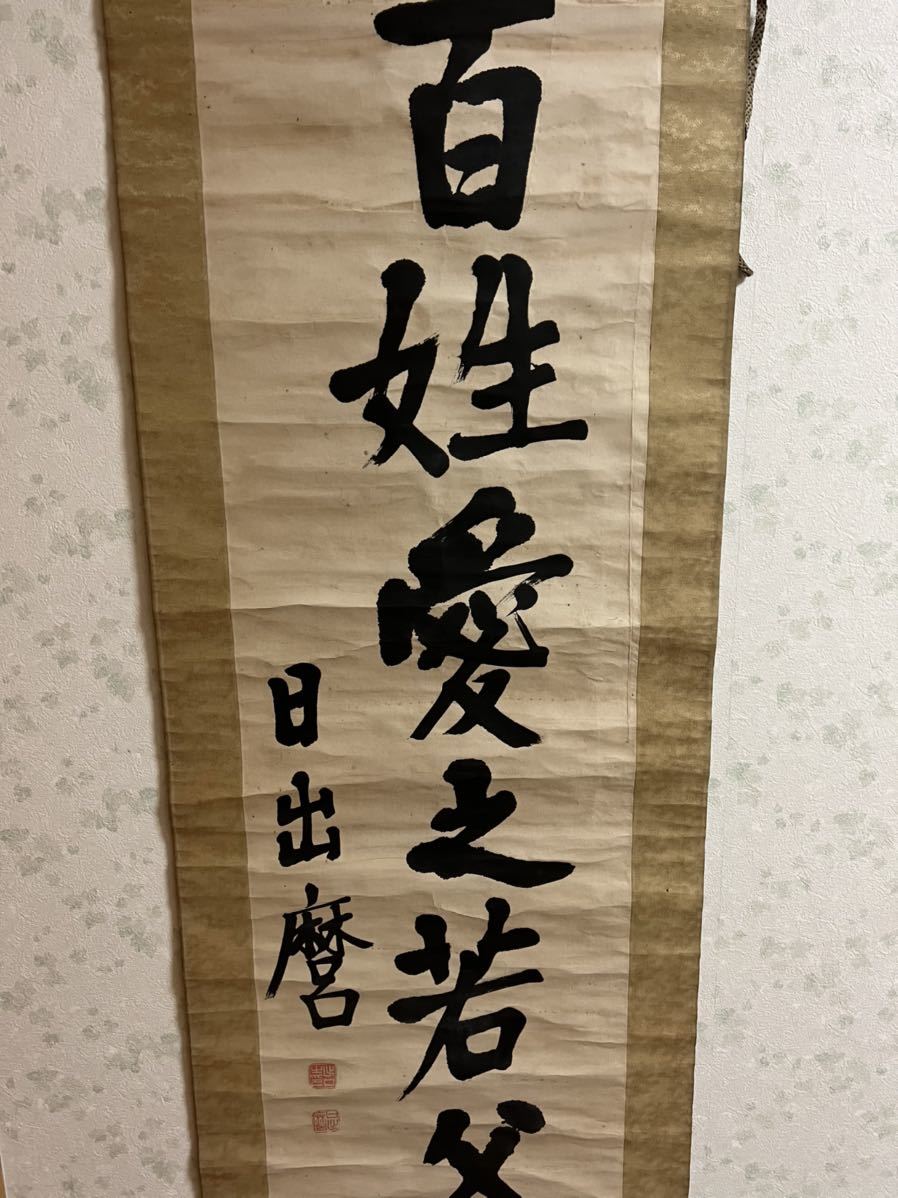 百姓愛之若父
日出麿